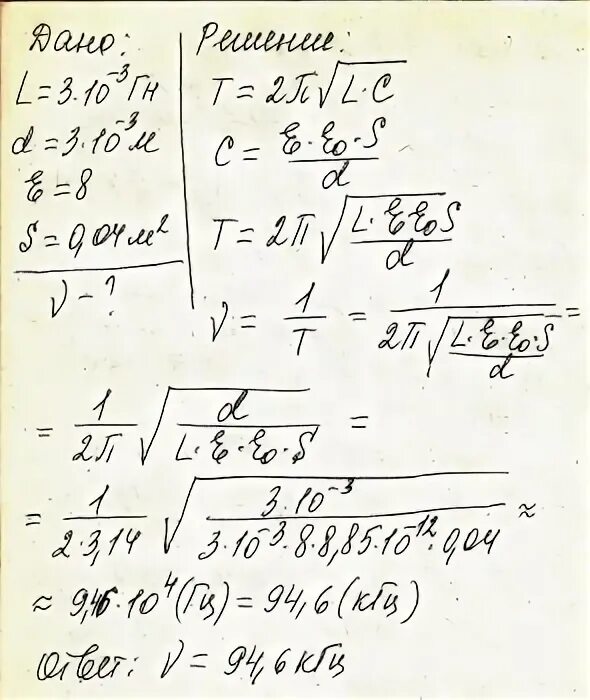 Дано:
L = 3·10⁻³ Гн
d = 3·10⁻³ м
ε = 8
S = 0,04 м²
ν - ?
Решение:
T = 2π√(L·C)
C = ε·ε₀·S / d
T = 2π√(L·εε₀S / d)
ν = 1/T = 1 / (2π√(L·ε·ε₀·S / d)) =
= 1/2π √(d / (L·ε·ε₀·S)) =
= 1/(2·3,14) √(3·10⁻³ / (3·10⁻³·8·8,85·10⁻¹²·0,04)) ≈
≈ 9,46·10⁴ (Гц) = 94,6 (кГц)
Ответ: ν = 94,6 кГц